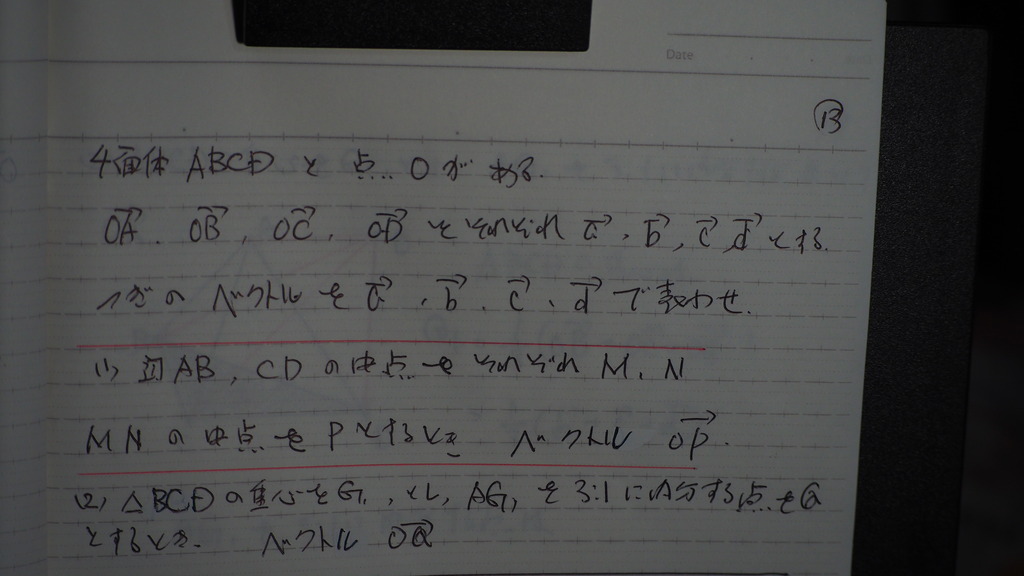 Date
⑬
4面体 ABCD と 点 O が ある.
$\overrightarrow{OA}$. $\overrightarrow{OB}$, $\overrightarrow{OC}$, $\overrightarrow{OD}$ を それぞれ $\vec{a}$, $\vec{b}$, $\vec{c}$, $\vec{d}$ とする.
つぎの ベクトル を $\vec{a}$, $\vec{b}$, $\vec{c}$, $\vec{d}$ で 表わせ.
(1) 辺 AB, CD の 中点 を それぞれ M, N
MN の 中点 を P とするとき ベクトル $\overrightarrow{OP}$.
(2) △BCD の 重心を G₁, とし, AG₁ を 3:1 に内分する点をQ
とするとき. ベクトル $\overrightarrow{OQ}$